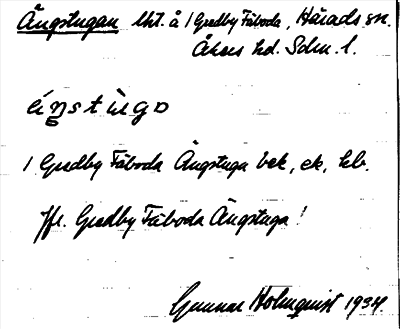 Ängstugan lht. å 1 Gredby Fäboda, Härads sn.
Åkers hd. Sdm. l.
1 Gredby Fäboda Ängstuga bek, ek, kb.
Jfr. Gredby Fäboda Ängstuga!
Gunnar Holmquist 1934.